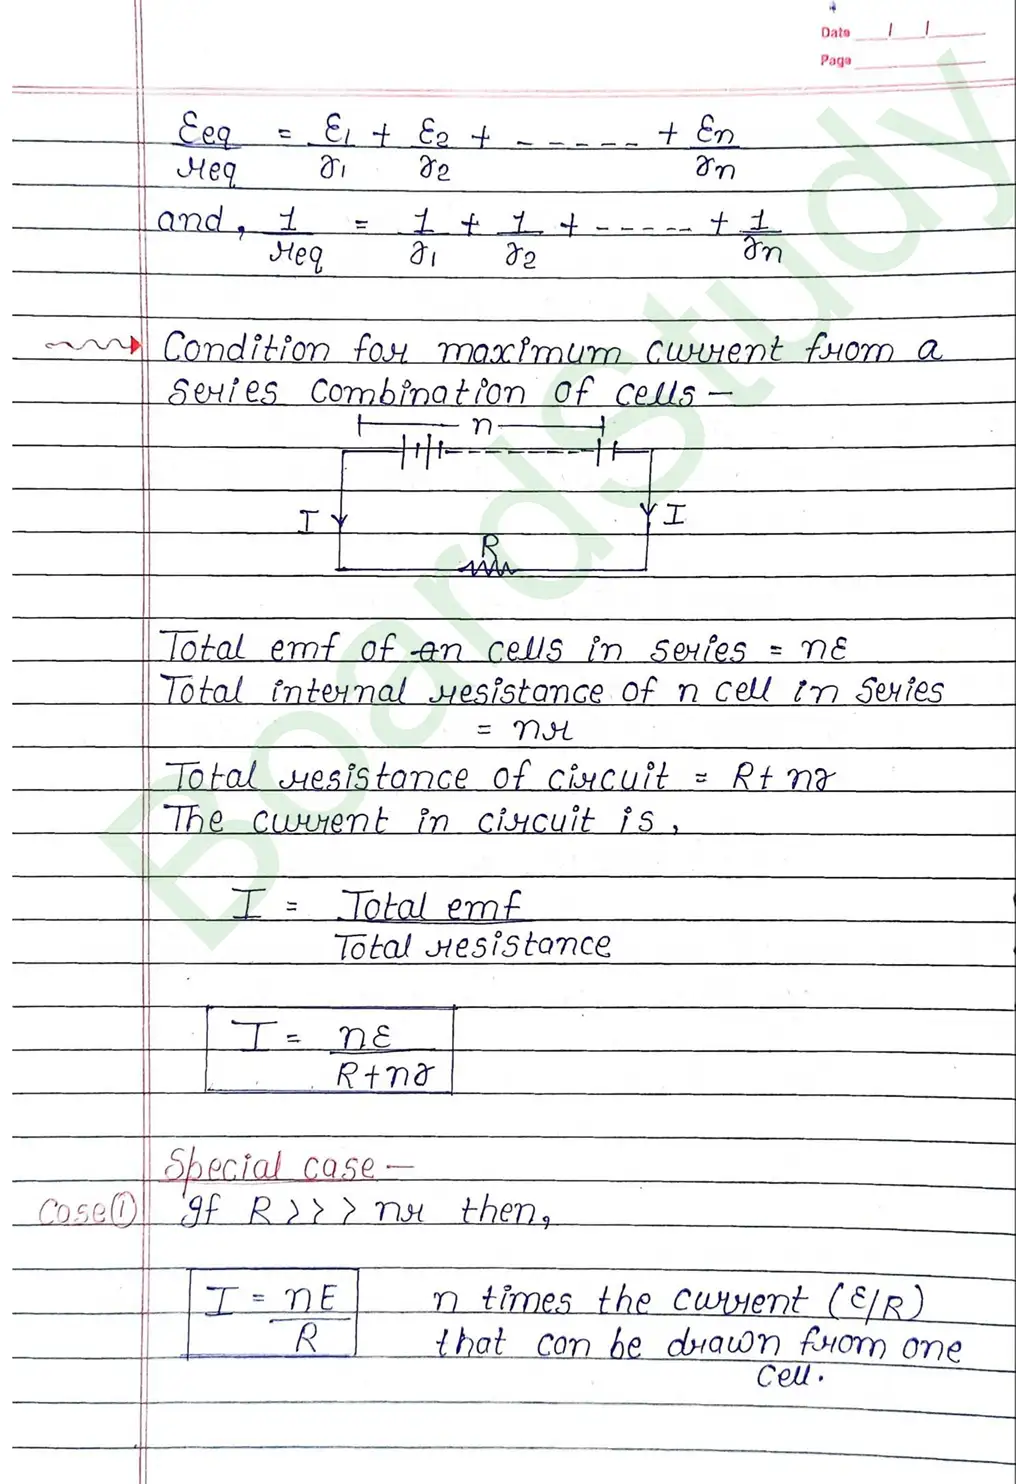 Date / /
Page
Ɛeq/req = Ɛ1/r1 + Ɛ2/r2 + ------ + Ɛn/rn
and, 1/req = 1/r1 + 1/r2 + ------ + 1/rn
Condition for maximum current from a
series combination of cells -
n
I
I
R
Total emf of an cells in series = nƐ
Total internal resistance of n cell in series
= nr
Total resistance of circuit = R+nr
The current in circuit is,
I = Total emf
Total resistance
I = nƐ
R+nr
Special case -
Case ① If R>>> nr then,
I = nE n times the current (Ɛ/R)
R that can be drawn from one
cell.
BoardStudy